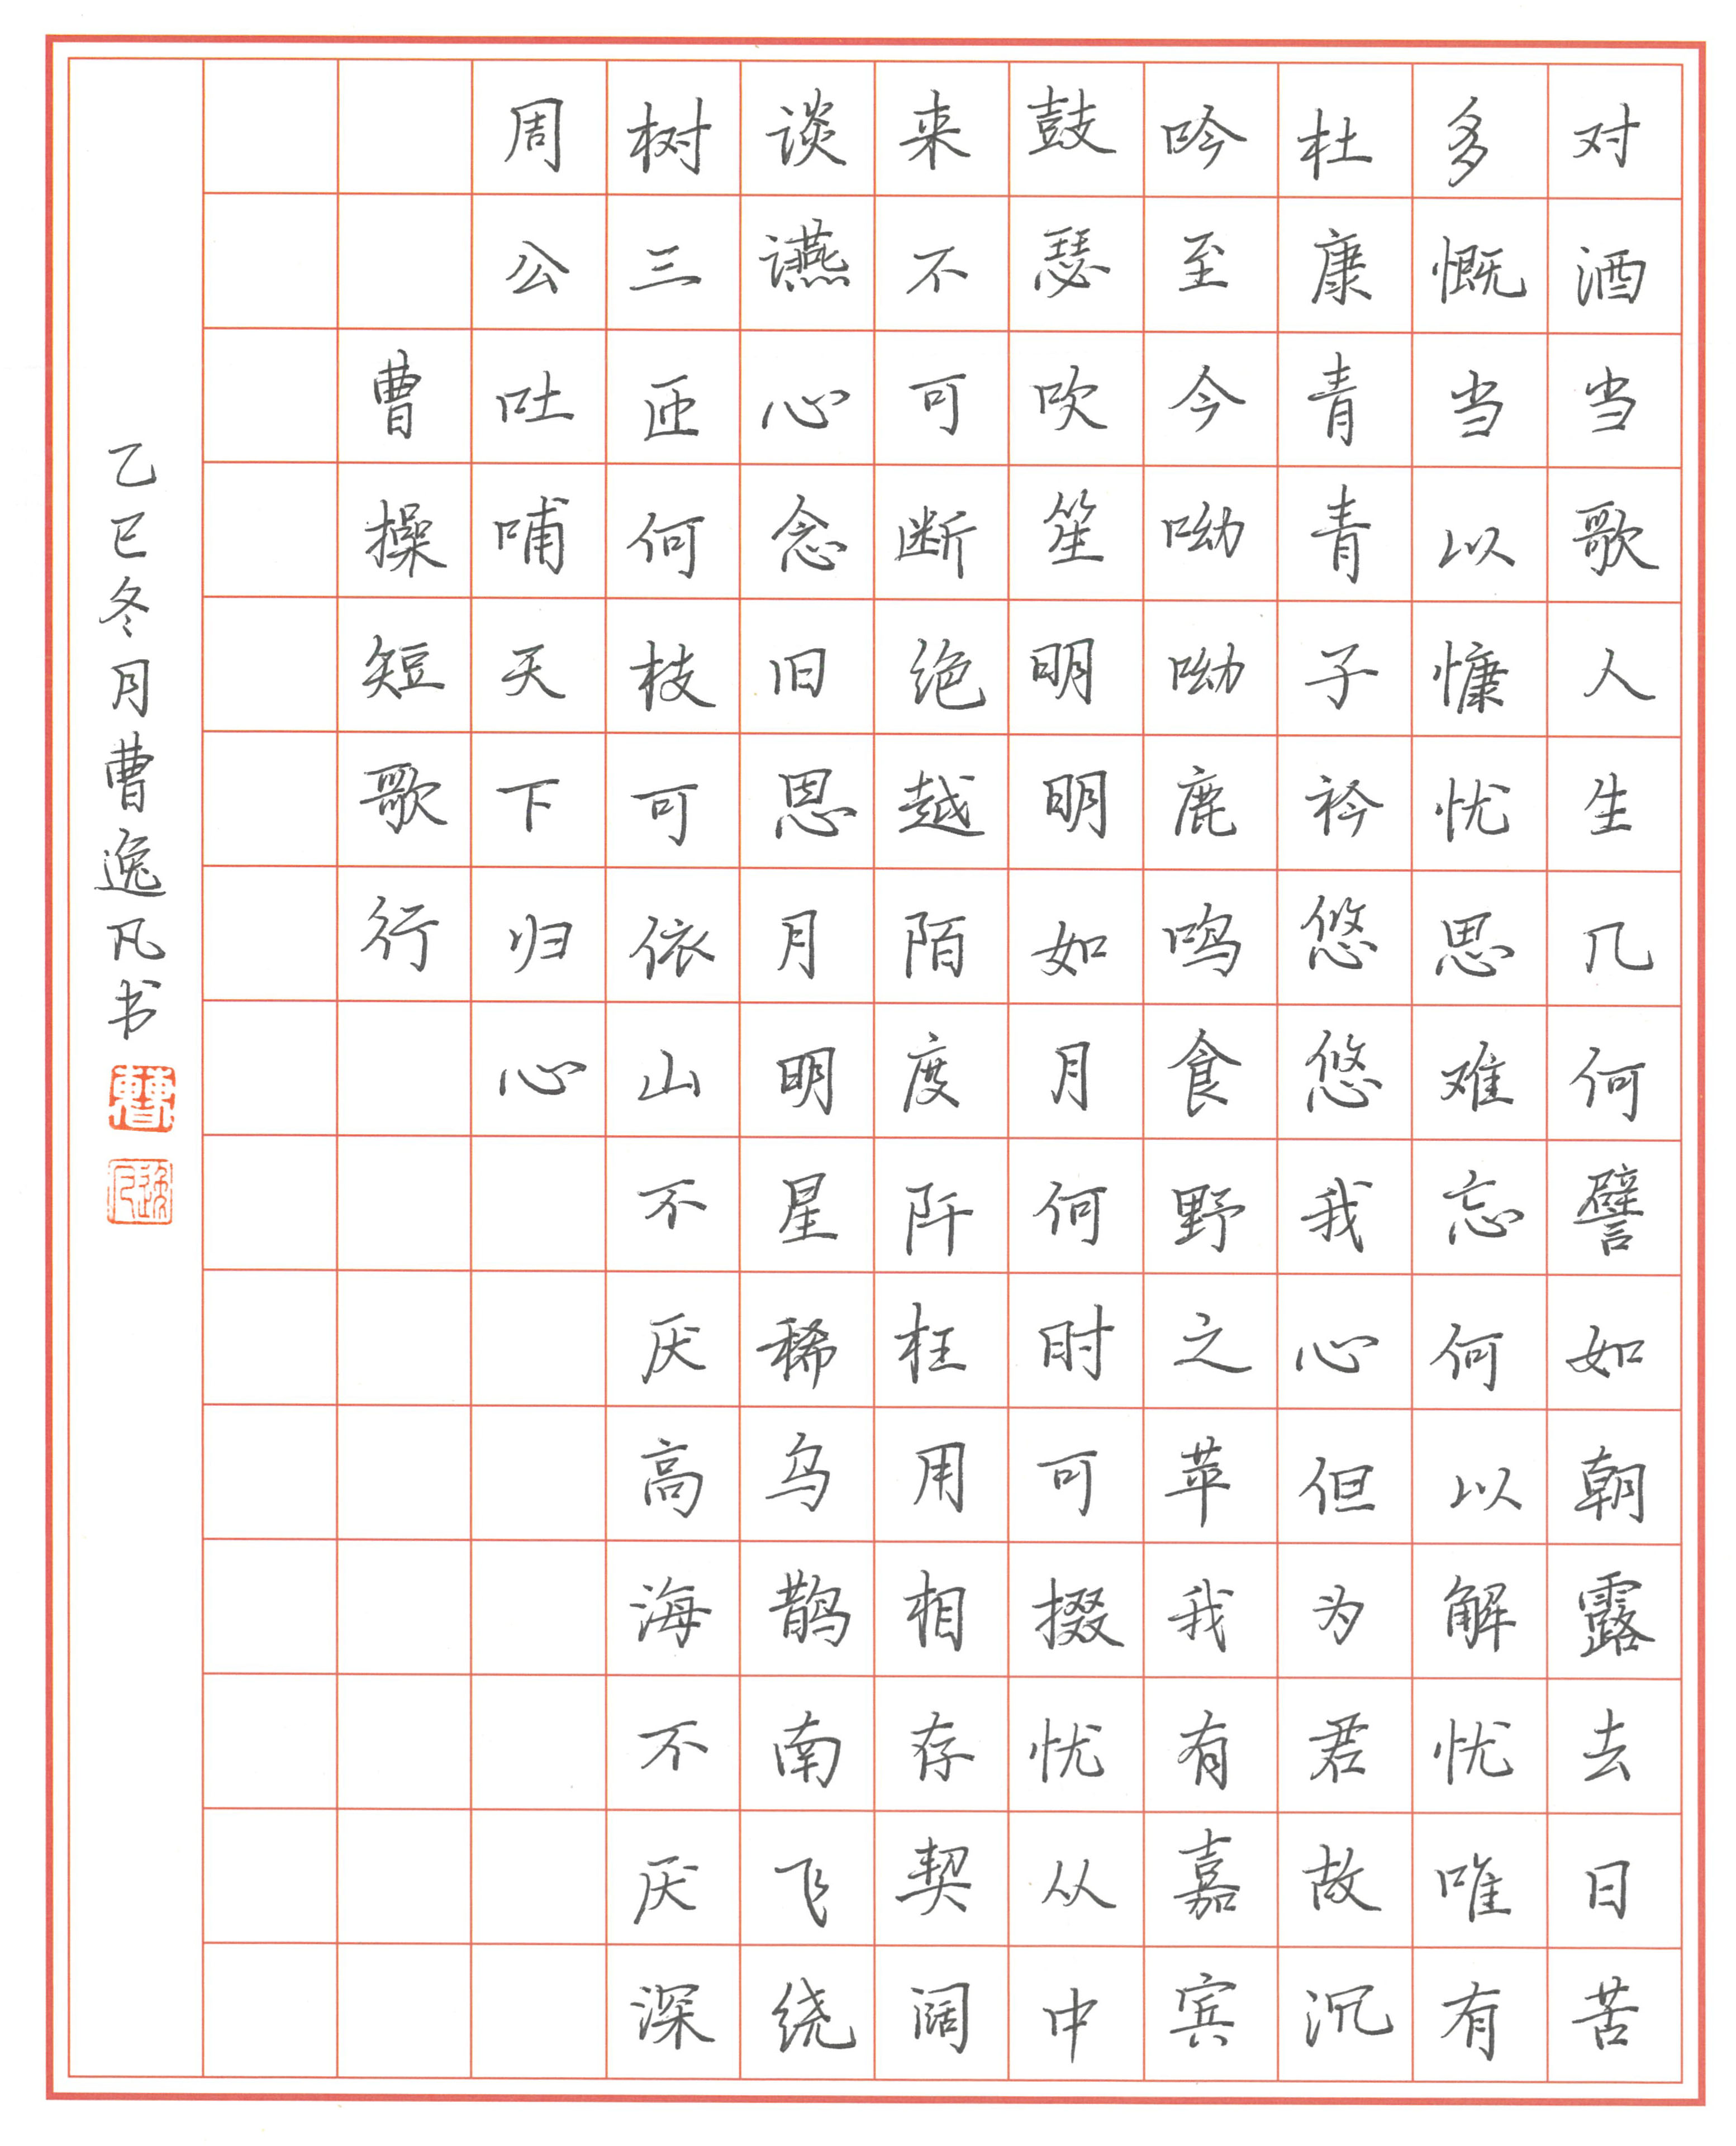 对酒当歌人生几何譬如朝露去日苦
多慨当以慷忧思难忘何以解忧唯有
杜康青青子衿悠悠我心但为君故沉
吟至今呦呦鹿鸣食野之苹我有嘉宾
鼓瑟吹笙明明如月何时可掇忧从中
来不可断绝越陌度阡枉用相存契阔
谈䜩心念旧恩月明星稀乌鹊南飞绕
树三匝何枝可依山不厌高海不厌深
周公吐哺天下归心
曹操短歌行
乙巳冬月曹逸凡书
曹
逸凡